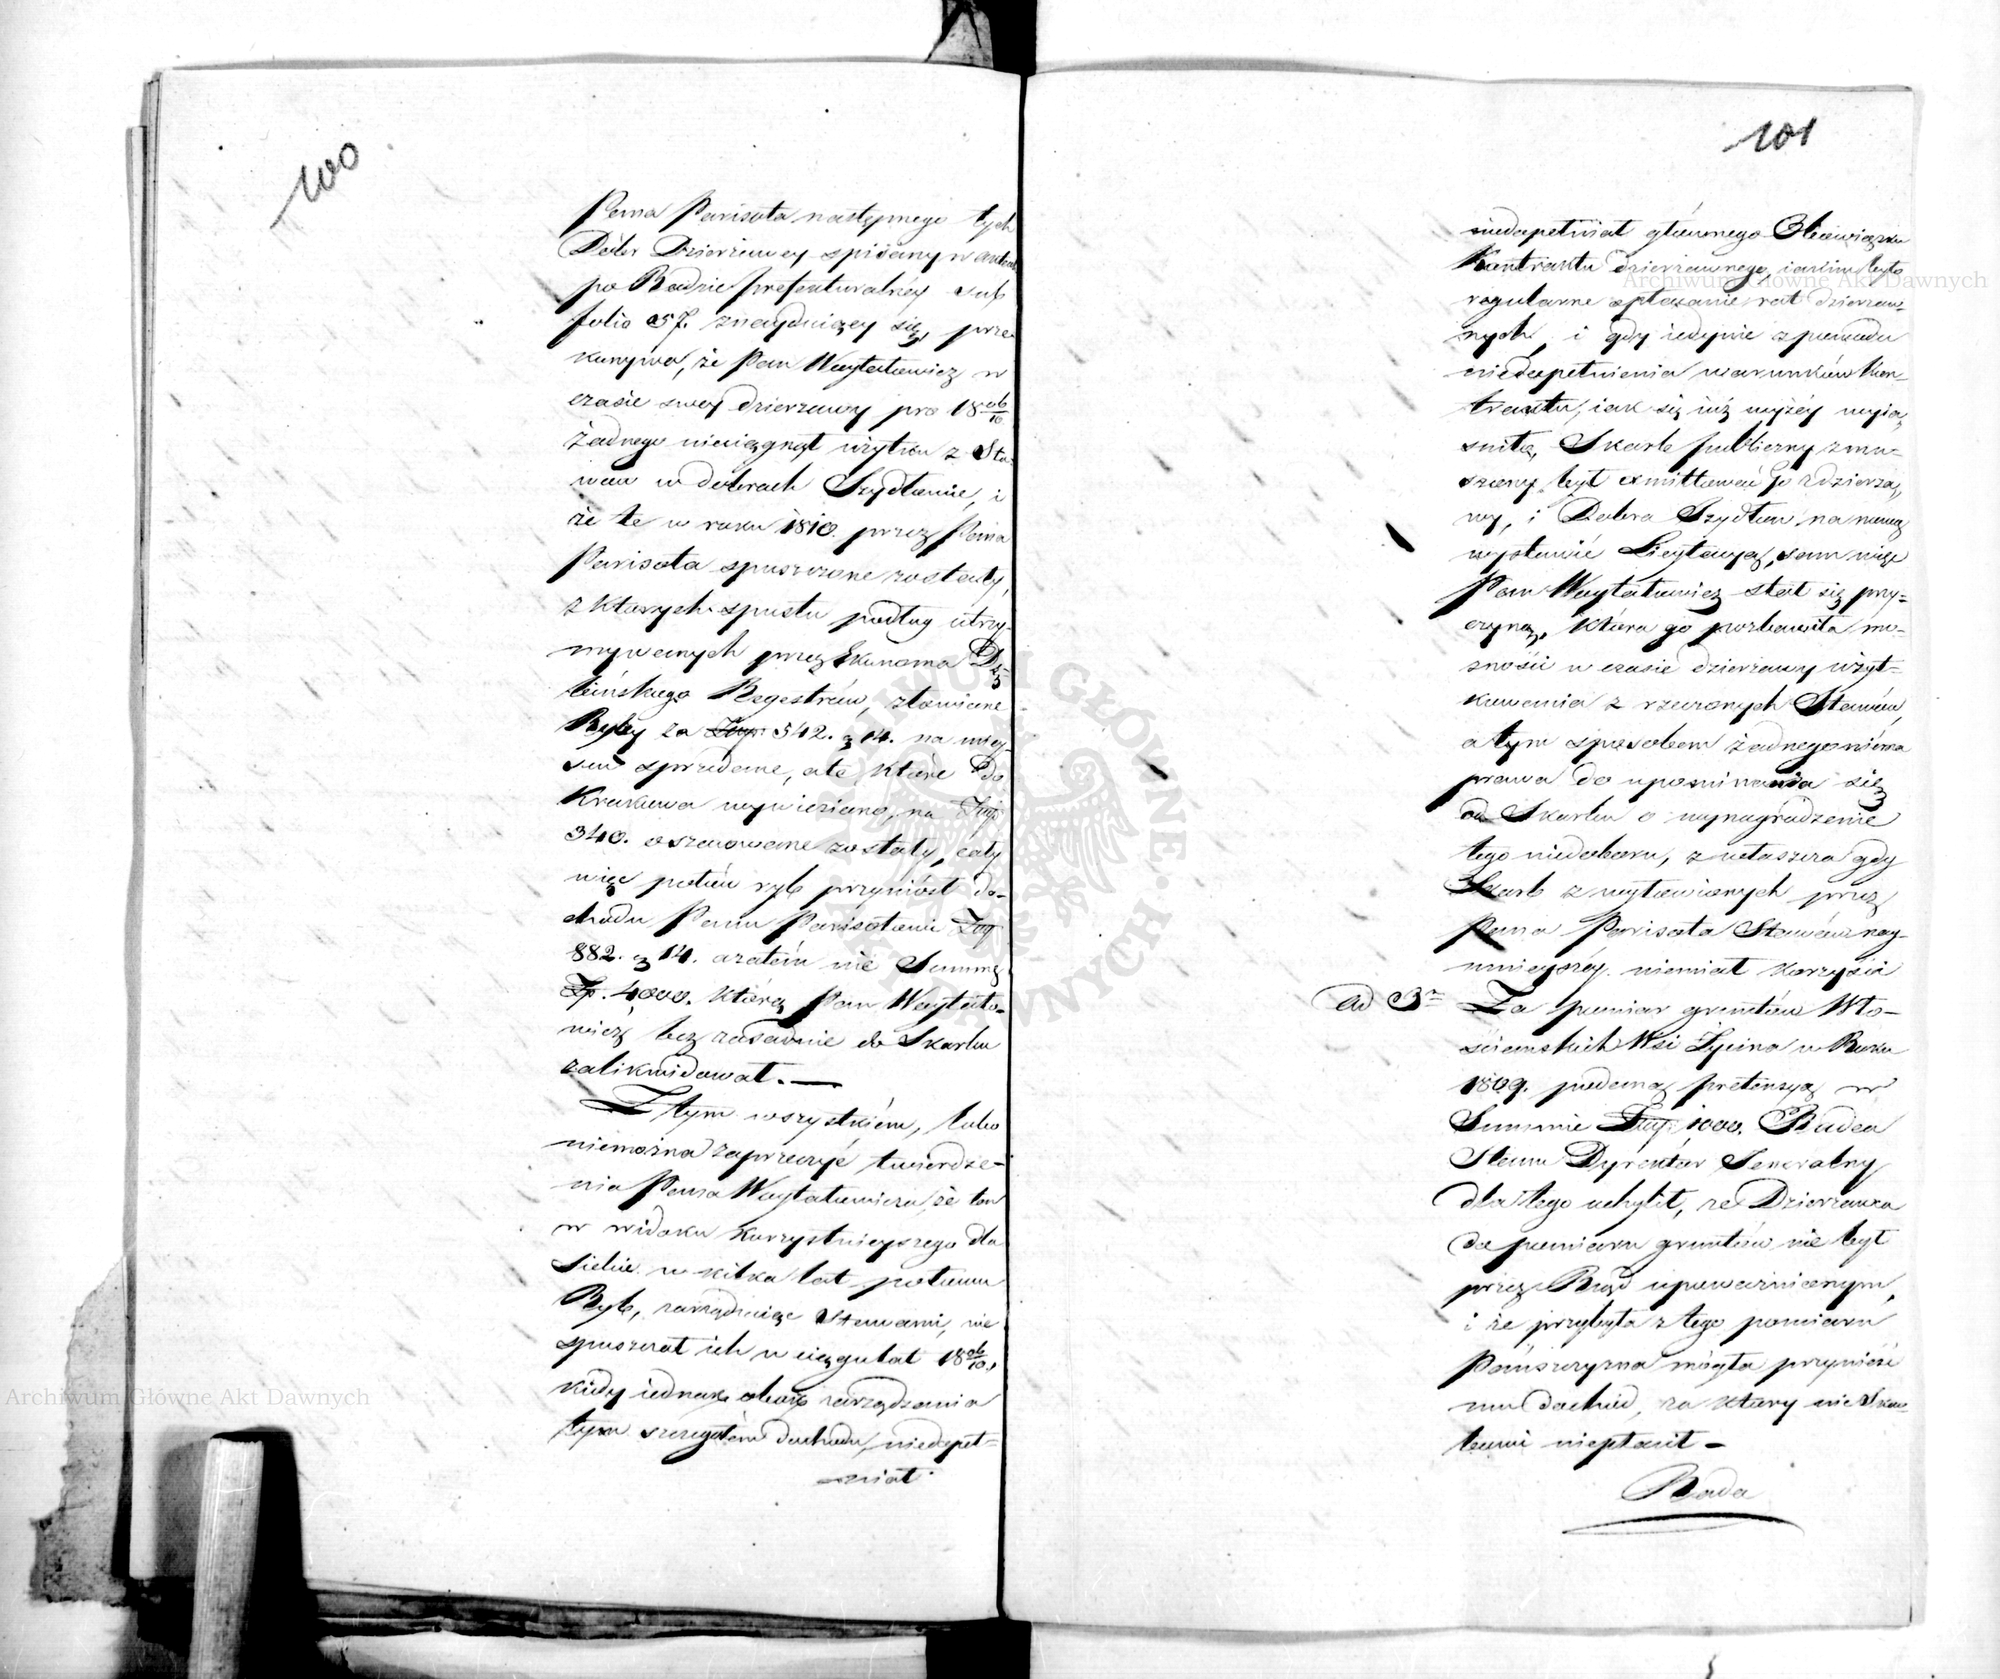 100
Pana Parisota następnego tych
Dóbr Dzierżawcy spisany w aktach
po Radzie prefekturalnéy sub
folio 57. znayduiący się, prze
konywa, że Pan Woytatowicz w
czasie swey dzierzawy pro 18 06/10
żadnego nieciągnął użytku z Sta-
wow w dobrach Szydłowie, i
że te w roku 1810. przez Pana
Parisota spuszczone zostały,
z których spustu podług utrzy-
mywanych przez Ekonoma
Regestrów, złowione
Ryby za Złp. 542. g 14. na miey-
scu sprzedane, a te które do
Krakowa wywieziono, na Złp
340. oszacowane zostały, cały
więc połów ryb przyniosł do-
chodu Panu Parisotowi Złp
882. g 14. a zatém nie Summę
Złp. 4000. którą Pan Woytato-
wicz bez zasadnie do Skarbu
zalikwidował. —
Z tym wszystkiém, lubo
niemożna zaprzeczyć twierdze-
nia Pana Woytatowicza, że ton
w widoku korzystnieyszego dla
siebie w kilka lat połowu
Ryb, zarządzaiąc Stawami, nie
spuszczał ich w ciągu lat 18 06/10,
kiedy iednak obok zarządzania
tym szczegółem dochodu, niedopeł-
niał
101
niedopełniał głównego Obowiązku
Kontraktu dzierżawnego, iakim było
regularne opłacanie rat dzierzaw-
nych, i gdy iedynie z powodu
niedopełnienia warunków Kon-
traktu, iak się iuż wyżéy wyia-
sniło, Skarb publiczny zmu-
szony był exmittować go z dzierza-
wy, i Dobra Szydłow na nową
wystawić Licytacyą, sam więc
Pan Woytatowicz stał się przy-
czyną, która go pozbawiła mo-
żności w czasie dzierzawy użyt-
kowania z rzeczonych Stawów,
a tym sposobem żadnego niéma
prawa do upominania się
od Skarbu o wynagrodzenie
tego niedoboru, zwłaszcza gdy
Skarb z wyłowionych przez
Pana Parisota Stawów nay-
mnieyszéy niemiał korzyści
ad 3m Za pomiar gruntów Wło-
ściańskich Wsi Życina w Roku
1809. podaną pretensyą w
Summie Złp. 1000. Radca
Stanu Dyrektor Generalny
dla tego uchylił, że Dzierzawca
do pomiaru gruntów nie był
przez Rząd upoważnionym,
i że przybyła z tego pomiaru
Pańszczyzna mogła przynieść
mu dochód, za który nie Skar-
bowi niepłacił —
Rada